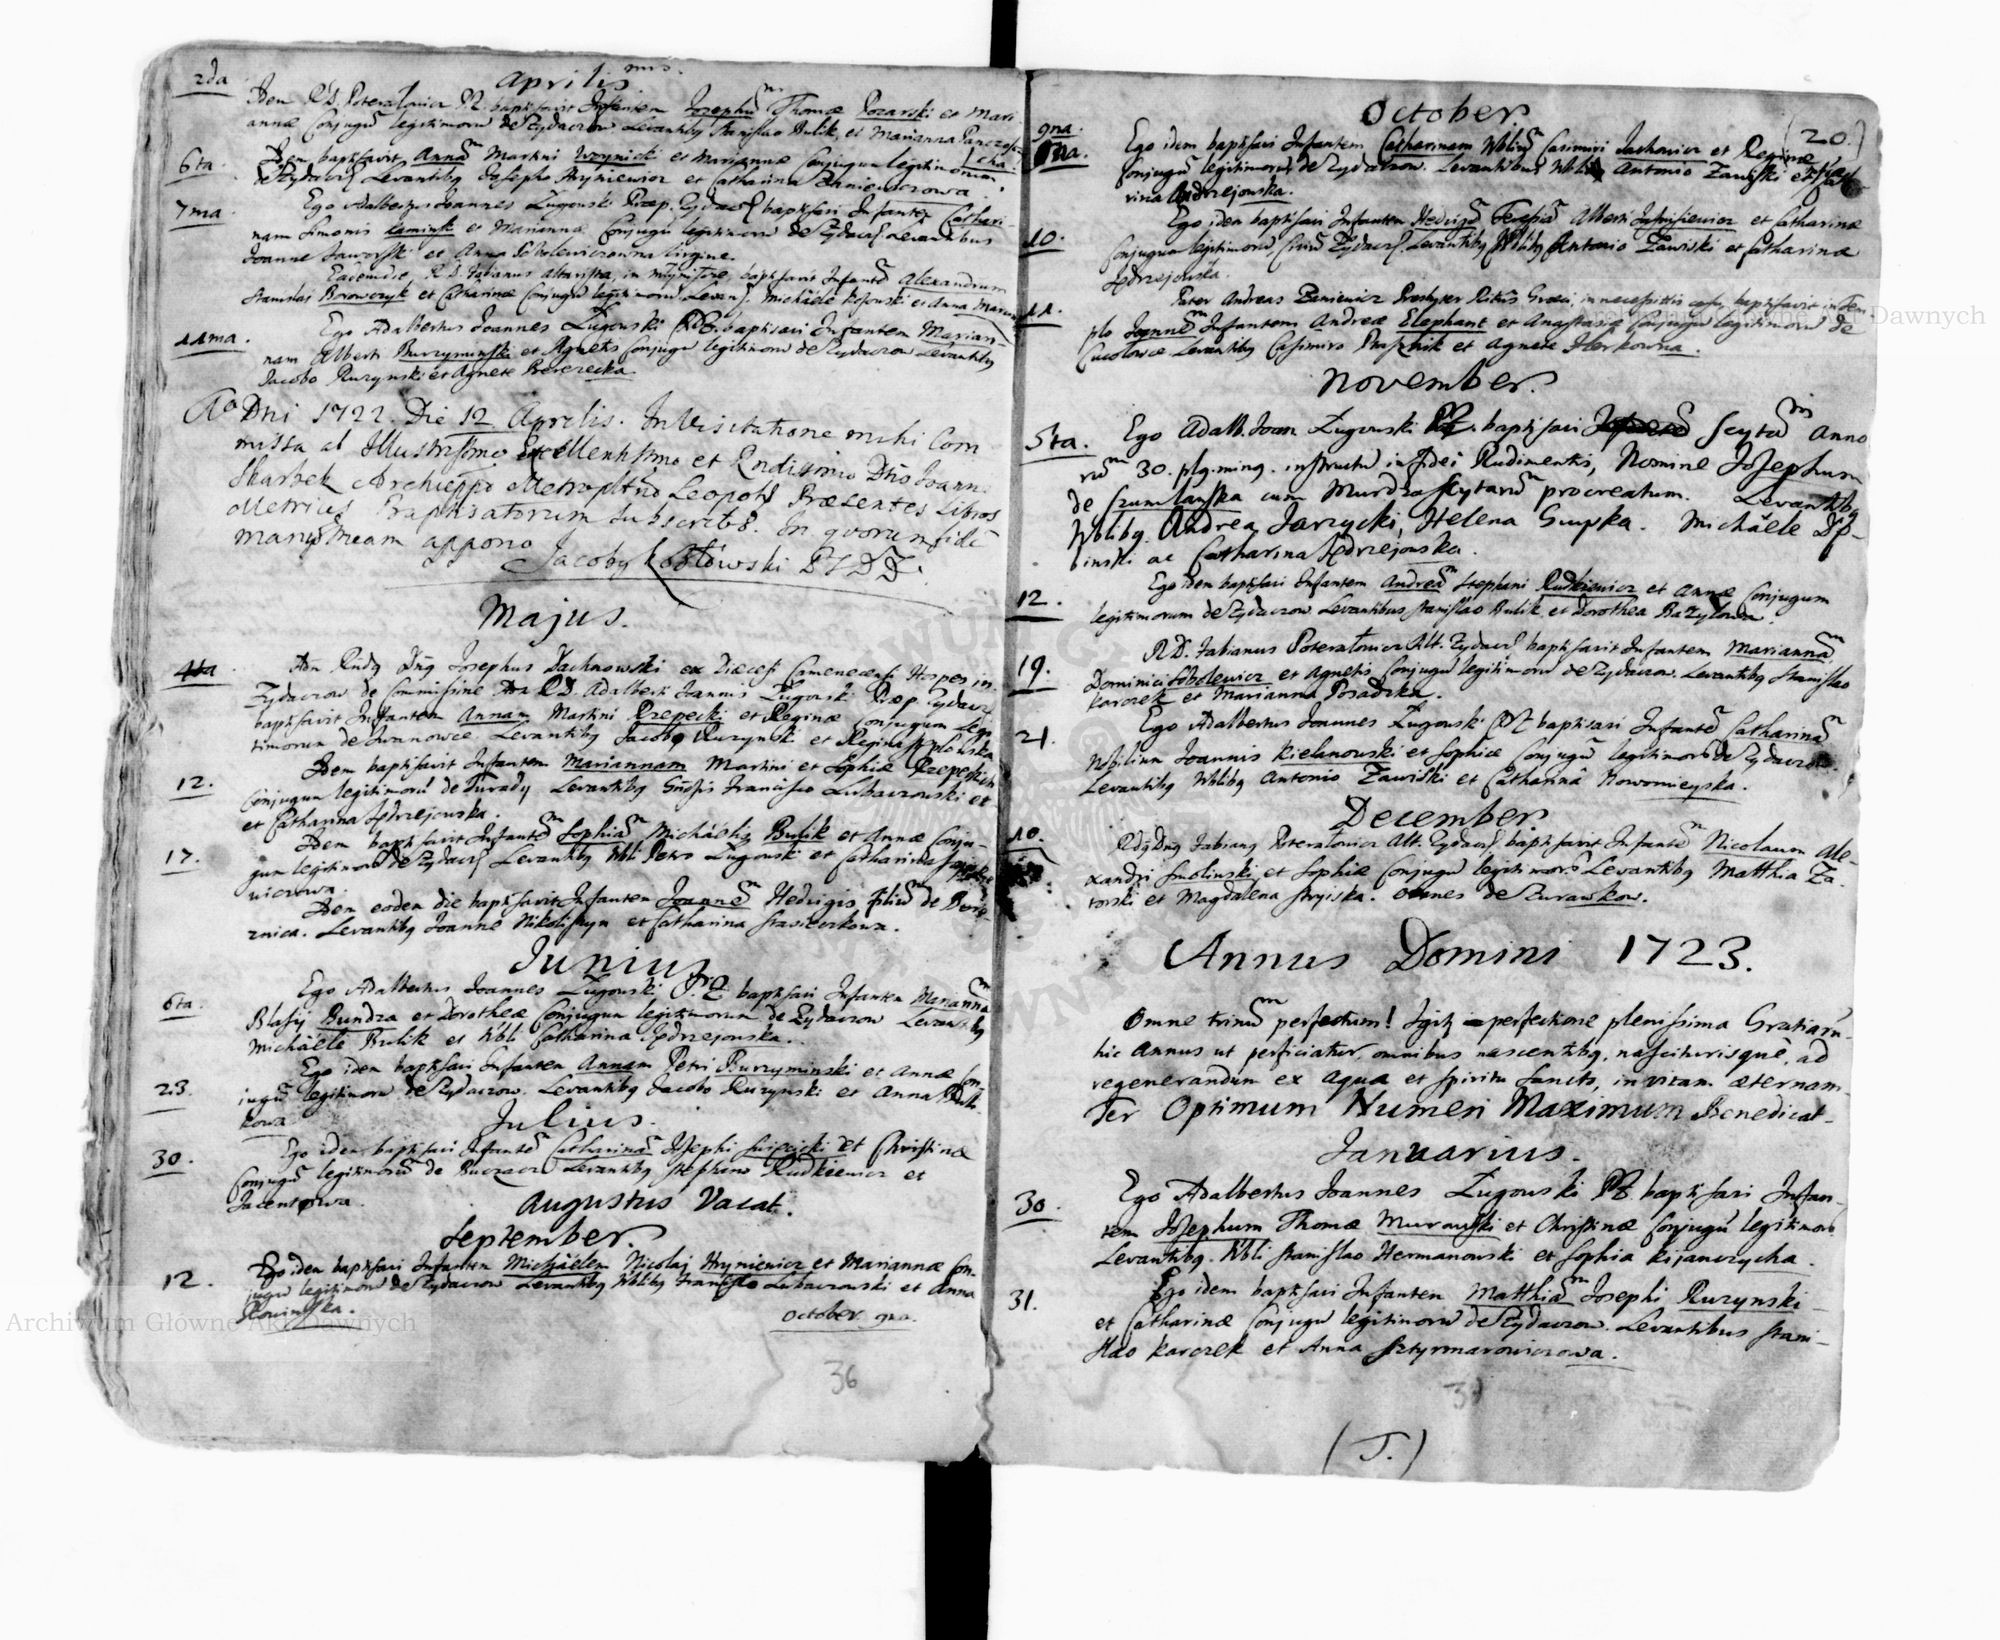 Aprilis
2da
Idem R.D. Poteralowicz baptisavit Infantem Josephum Thomæ Pozarski et Mari-
annæ Conjugum legitimorum de Zydaczow Levantibg Stanislao Bulik et Marianna
6ta.
Idem baptisavit Annam Martini Woynicki et Mariannæ Conjugum legitimorum
de Zydaczow Levantibg Josepho Hryniewicz et Catharina
7ma.
Ego Adalbertus Joannes Zugowski Præp. Zydacz. baptisavi Infantem Cathari-
nam Simonis Kaminski et Mariannæ Conjugum legitimorum de Zydacz. Levantibus
Joanne Jaworski et Anna Sobolewiczowna Virgine.
Eademdie R.D. Fabianus Altarista, baptisavit Infantem Alexandrum
Stanislai Borowczyk et Catharinæ Conjugum legitimorum Levan. Michaele Kosowski et Anna
11ma.
Ego Adalbertus Joannes Zugowski baptisavi Infantem Marian-
nam Alberti Burzyminski et Agnetis Conjugum legitimorum de Zydaczow Levantibg
Jacobo Ruzynski et Agnete
Ao Dni 1722. Die 12 Aprilis. In Visitatione mihi Com-
missa ab Illustrissimo Excellentissimo et Rndissimo Dno Joanne
Skarbek Archieppo Metropltno Leopol. Præsentes Libros
Metrices Baptisatorum Subscribo. In quorum fidem
manum meam appono
Jacobg
Majus.
4ta
Rndg Dng Josephus Dachnowski ex Diæcesi Camenecensi Hospes in
Zydaczow de Commissione R.D. Adalberti Joannis Zugowski Præp. Zydacz.
baptisavit Infantem Annam Martini Rzepecki et Reginæ Conjugum legi-
timorum de Iwanowce. Levantibg Jacobo Ruzynski et Regina
12.
Idem baptisavit Infantem Mariannam Martini et Sophiæ
Conjugum legitimorum de Turady Levantibg Francisco Lubaczowski et
et Catharina Jędrzejowska.
17.
Idem baptisavit Infantem Sophiam Michaelis Bulik et Annæ Conju-
gum legitimorum de Zydacz. Levantibg Nbli Petro Zugowski et Catharina
wiczowa.
Idem eodem die baptisavit Infantem Joannem Hedvigis filium de Bere-
znica. Levantibg Joanne Nikolishyn et Catharina
Junius
6ta.
Ego Adalbertus Joannes Zugowski baptisavi Infantem Mariannam
Blasij Bundza et Dorotheæ Conjugum legitimorum de Zydaczow Levantibg
Michaele Bulik et Nbli Catharina Jędrzejowska.
23.
Ego idem baptisavi Infantem Annam Petri Burzyminski et Annæ Con-
jugum legitimorum de Zydaczow. Levantibg Jacobo Ruzynski et Anna
kowa
Julius.
30.
Ego idem baptisavi Infantem Catharinam Josephi et Christinæ
Conjugum legitimorum de Levantibg Stephano Rudkiewicz et
Augustus Vacat.
September.
12.
Ego idem baptisavi Infantem Michäelem Nicolaj Hryniewicz et Mariannæ Con-
jugum legitimorum de Zydaczow Levantibg Nblibg Francisco Lubaczowski et Anna
October 9na.
36
October
(20.)
9na.
9na.
Ego idem baptisavi Infantem Catharinam Nbilium Casimiri Jachowicz et Reginæ
Conjugum legitimorum de Zydaczow. Levantibus Nblibg Antonio Zawiski et
Jędrzejowska.
10.
Ego idem baptisavi Infantem Hedvigem Teresiam Alberti et Catharinæ
Conjugum legitimorum, Civium Zydacz. Levantibg Nblibg Antonio Zawiski et Catharina
Jędrzejowska.
11.
Pater Andreas Presbyter Ritus Græci, in necessitatis casu, baptisavit in Tem-
plo Joannem Infantem Andreæ Elephant et Anastasiæ Conjugum legitimorum de
Cucolowce Levantibg Casimiro et Agnete
November.
5ta.
Ego Adalb. Joan. Zugowski baptisavi Scytam Anno
rum 30. plg. ming. instructum in Fidei Rudimentis, Nomine Josephum
de cum Murdza Scytarum procreatum. Levantibg
Nblibg. Andrea Jarzycki, Helena Michäele Dę-
binski ac Catharina Jędrzejowska.
12.
Ego idem baptisavi Infantem Andream Stephani Rudkiewicz et Annæ Conjugum
legitimorum de Zydaczow. Levantibus Stanislao Bulik et Dorothea Bazylowa.
19.
R.D. Fabianus Poteralowicz Alt. Zydacz. baptisavit Infantem Mariannam
Dominici Sobolewicz et Agnetis Conjugum legitimorum de Zydaczow. Levantibg Stanislao
Karczek et Marianna Posadzka.
21.
Ego Adalbertus Joannes Zugowski baptisavi Infantem Catharinam
Nbilium Joannis Kielanowski et Sophiæ Conjugum legitimorum de Zydaczow.
Levantibg Nblibg Antonio Zawiski et Catharina Nowomieyska.
December
10.
Rdg Dng Fabiang Poteralowicz Alt. Zydacz. baptisavit Infantem Nicolaum Ale-
xandri Smolinski et Sophiæ Conjugum legitimorum Levantibg Matthia Za-
torski et Magdalena Stryiska. Omnes de Zurawkow.
Annus Domini 1723.
Omne trinum perfectum! Igitur perfectione plenissima Gratiarum
hic Annus ut perficiatur, omnibus nascentibg, nasciturisque, ad
regenerandum ex aqua et Spiritu Sancto, in vitam æternam
Ter Optimum Numeri Maximum Benedicat
Januarius.
30.
Ego Adalbertus Joannes Zugowski baptisavi Infan-
tem Josephum Thomæ Murawski et Christinæ Conjugum legitimorum
Levantibg. Nbli Stanislao Hermanowski et Sophia Kijanczycha.
31.
Ego idem baptisavi Infantem Matthiam Josephi Ruzynski
et Catharinæ Conjugum legitimorum de Zydaczow. Levantibus Stani-
slao Karczek et Anna Sztyrmarowiczowa.
(T.)
Archiwum Główne Akt Dawnych
Archiwum Główne Akt Dawnych